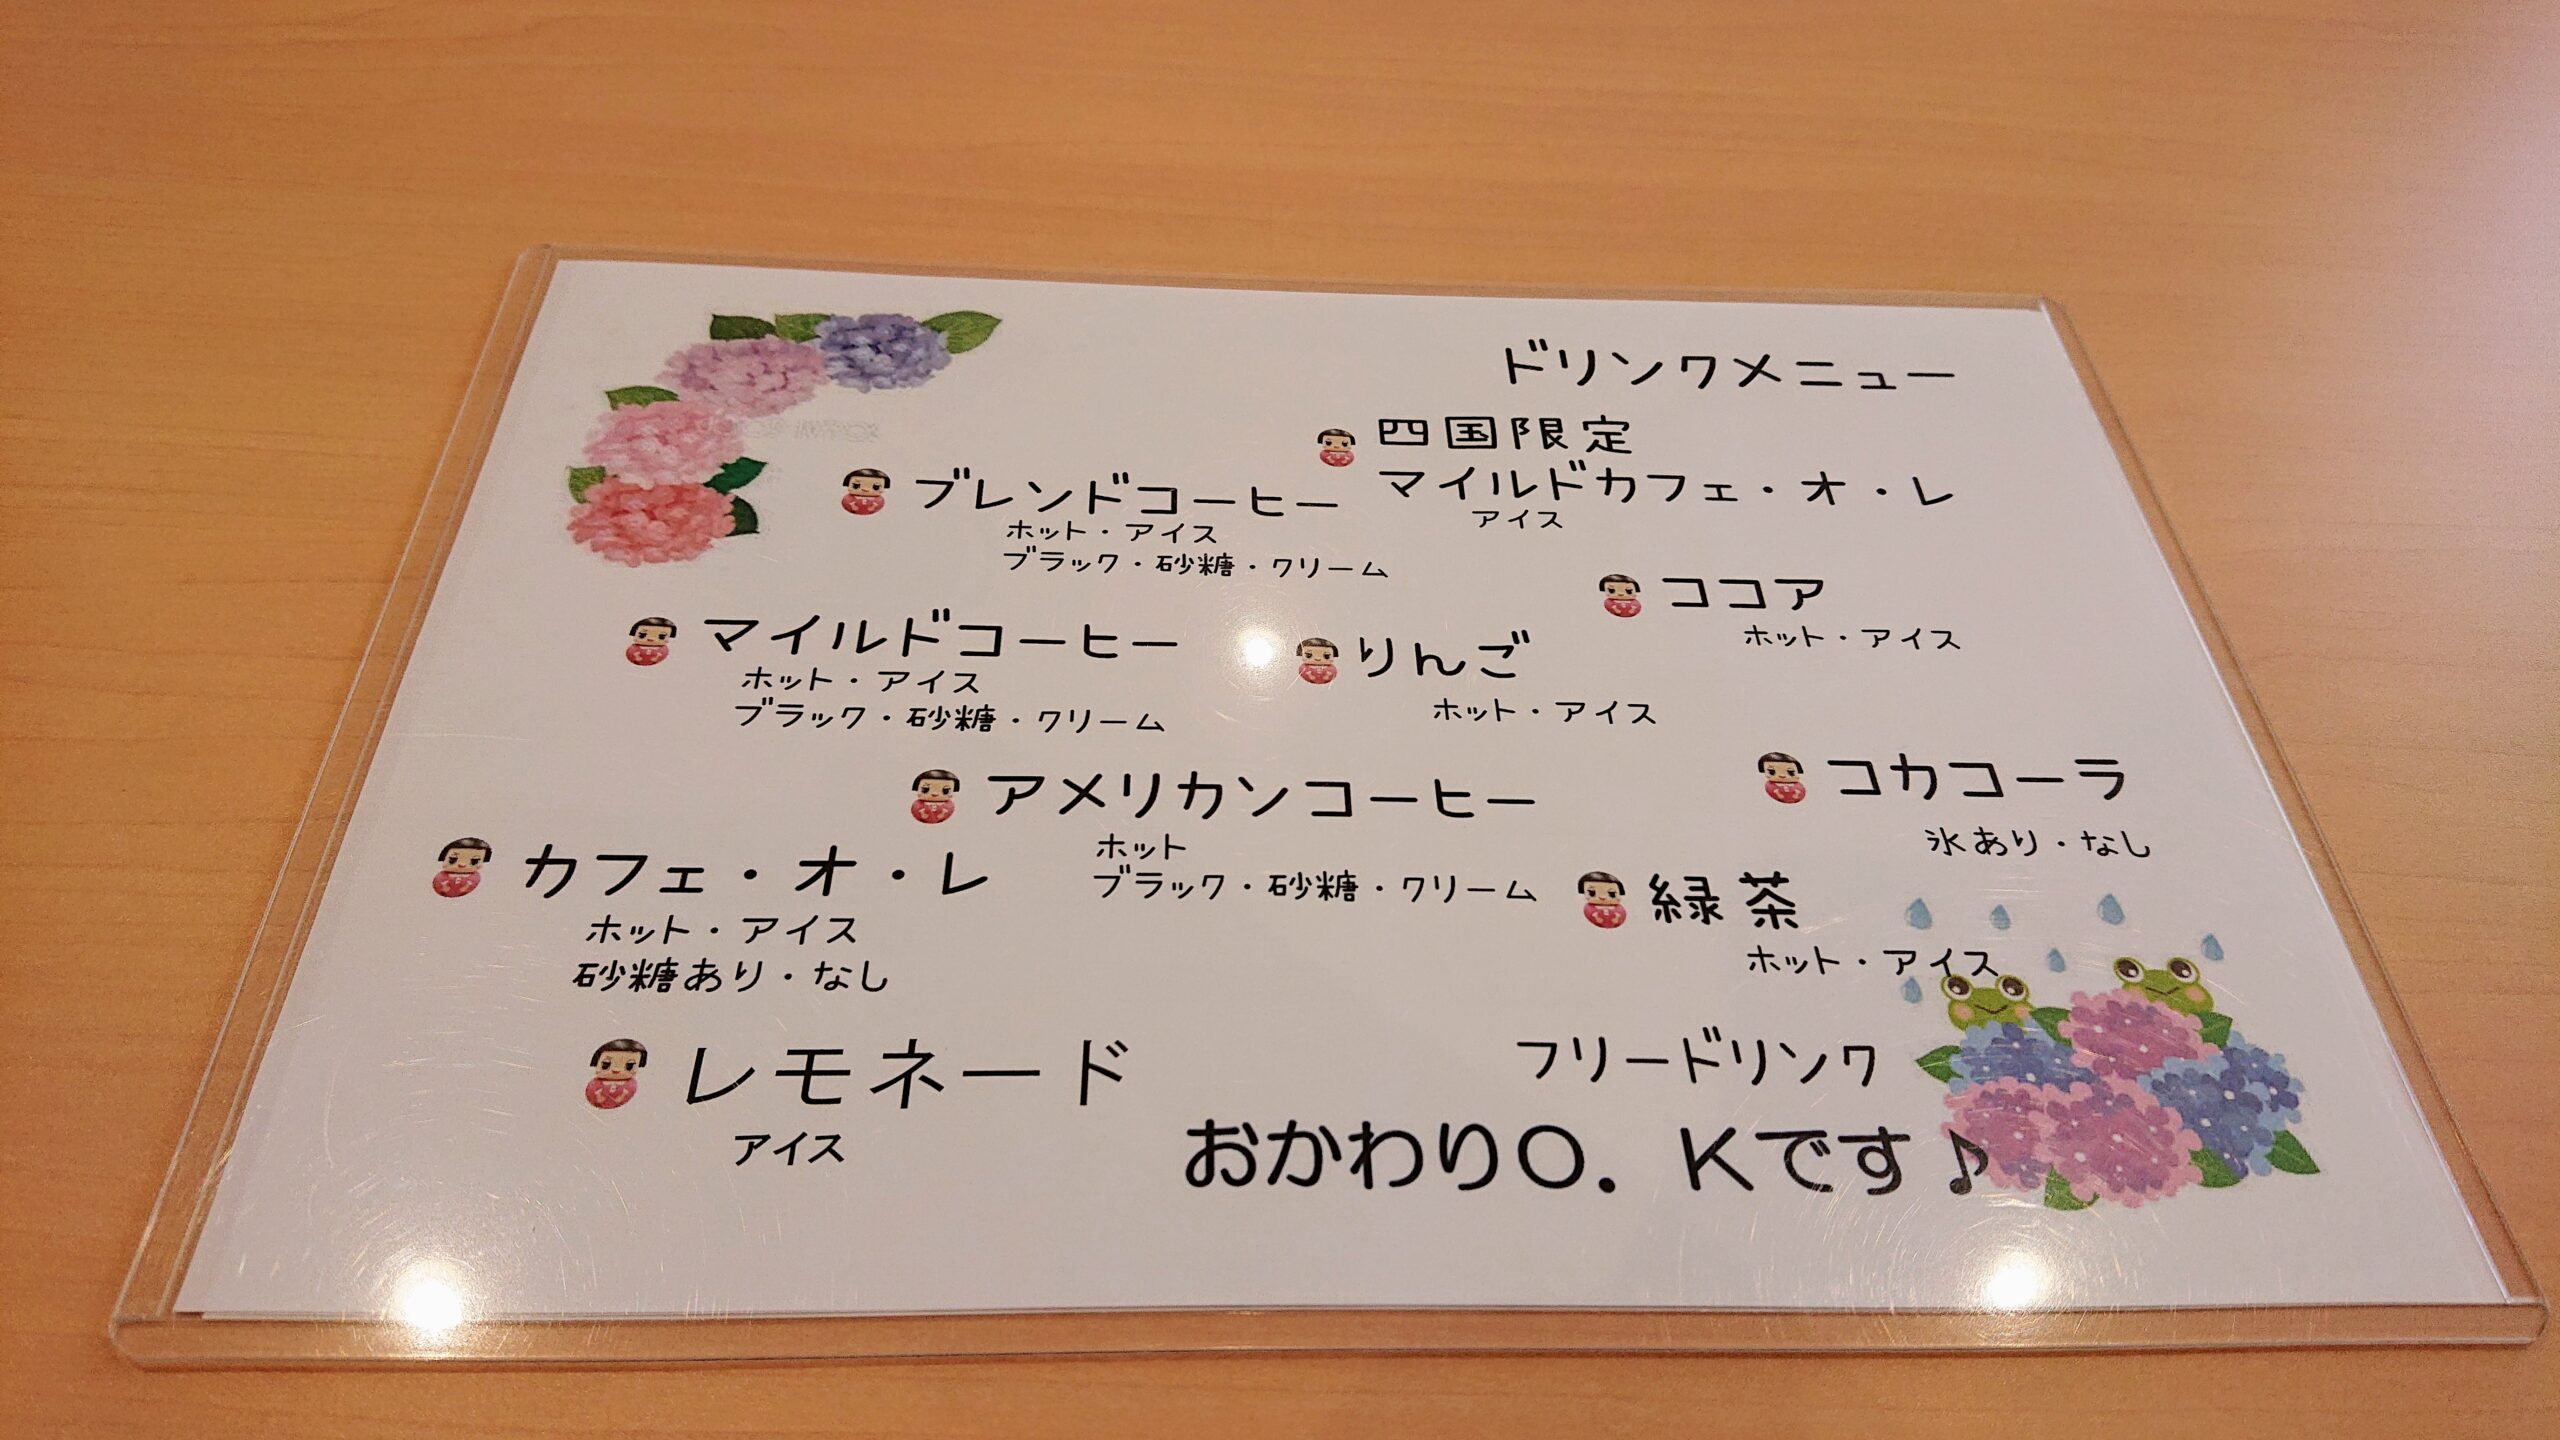 ドリンクメニュー
四国限定
マイルドカフェ・オ・レ
アイス
ブレンドコーヒー
ホット・アイス
ブラック・砂糖・クリーム
ココア
ホット・アイス
マイルドコーヒー
ホット・アイス
ブラック・砂糖・クリーム
りんご
ホット・アイス
アメリカンコーヒー
ホット
ブラック・砂糖・クリーム
コカコーラ
氷あり・なし
カフェ・オ・レ
ホット・アイス
砂糖あり・なし
緑茶
ホット・アイス
レモネード
アイス
フリードリンク
おかわりO.Kです♪